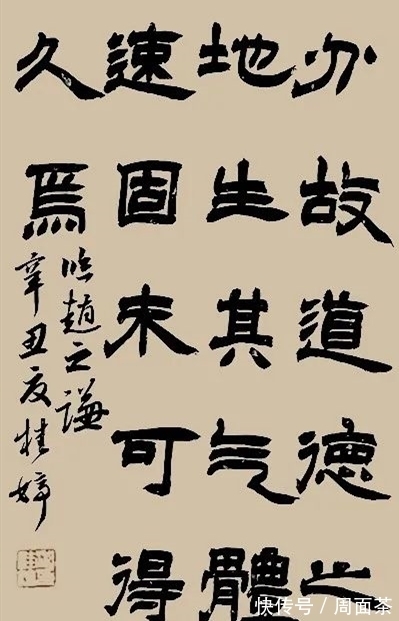 故道德之
地生其气體
速固未可得
久焉
临趙之謙
辛丑夏桂婷
快传号/周面茶